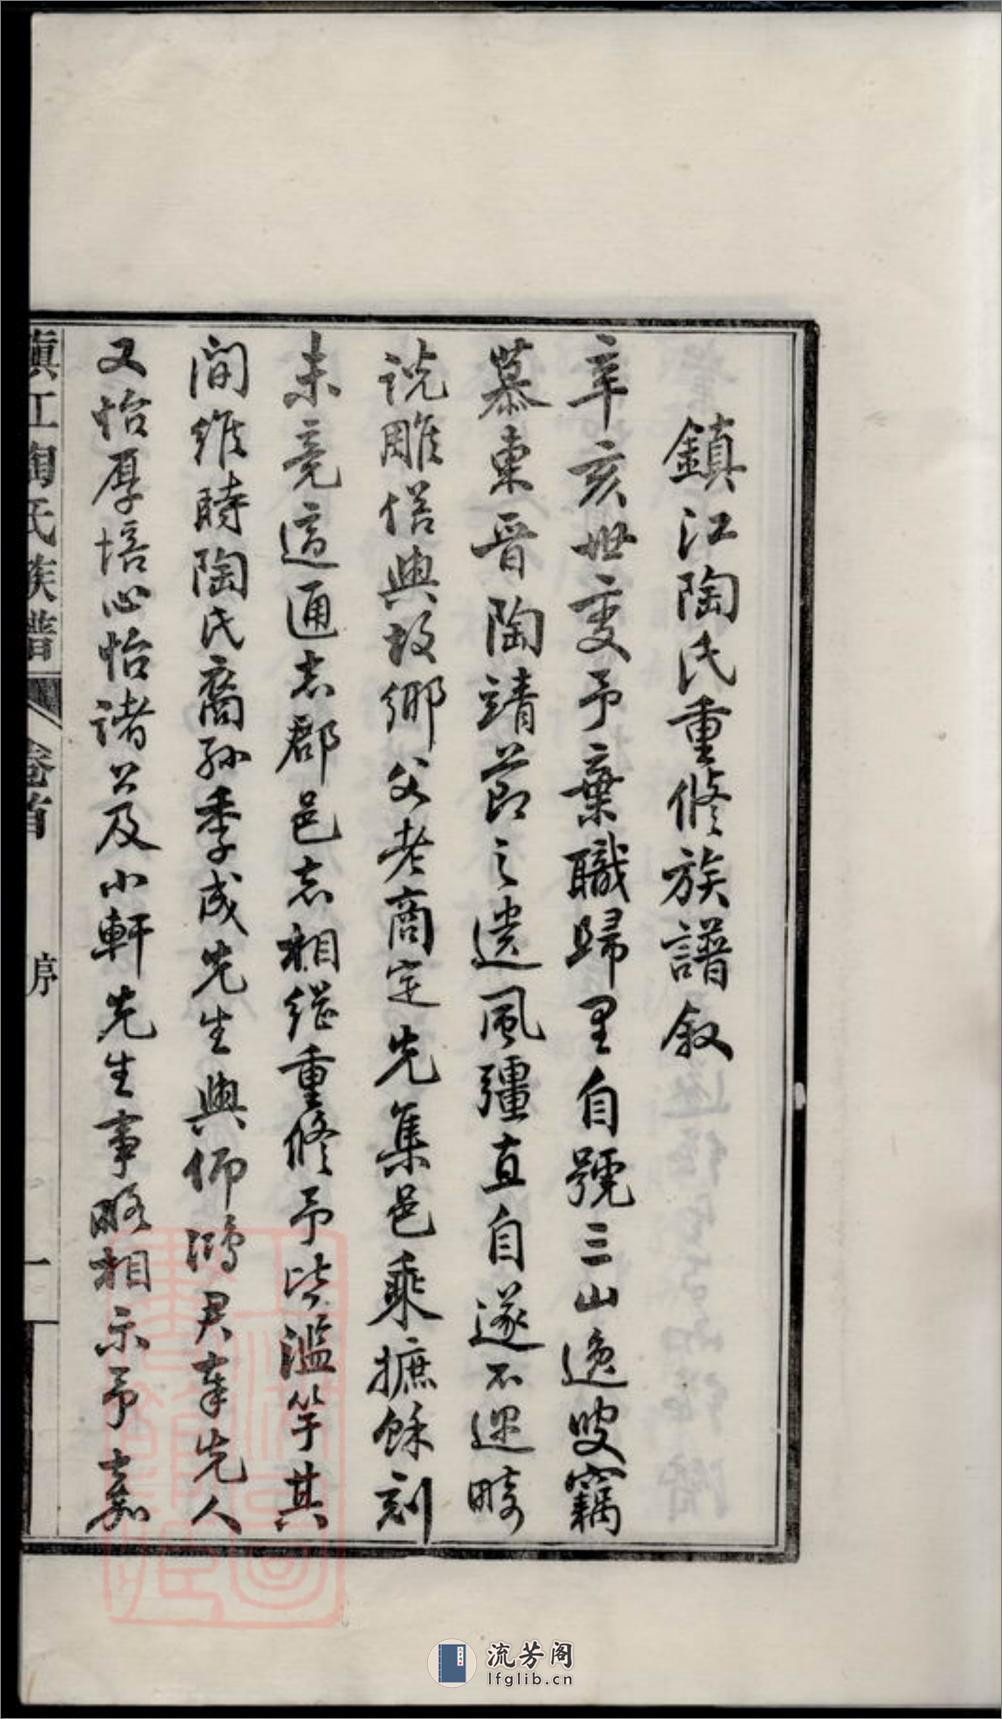 鎮江陶氏重修族譜敘
辛亥世變予棄職歸里自號三山逸叟竊
慕東晉陶靖節之遺風彊直自遂不迴時
說雕偐與故鄉父老商定先集邑乘摭餘刻
未竟這通志郡邑志相繼重修予皆濫竽其
間維時陶氏裔孫季成先生與仰鴻君奉先人
又怡厚培心怡諸公及小軒先生事略相示予嘉
鎮江陶氏族譜
卷首
序
一
流芳阁
lfglib.cn